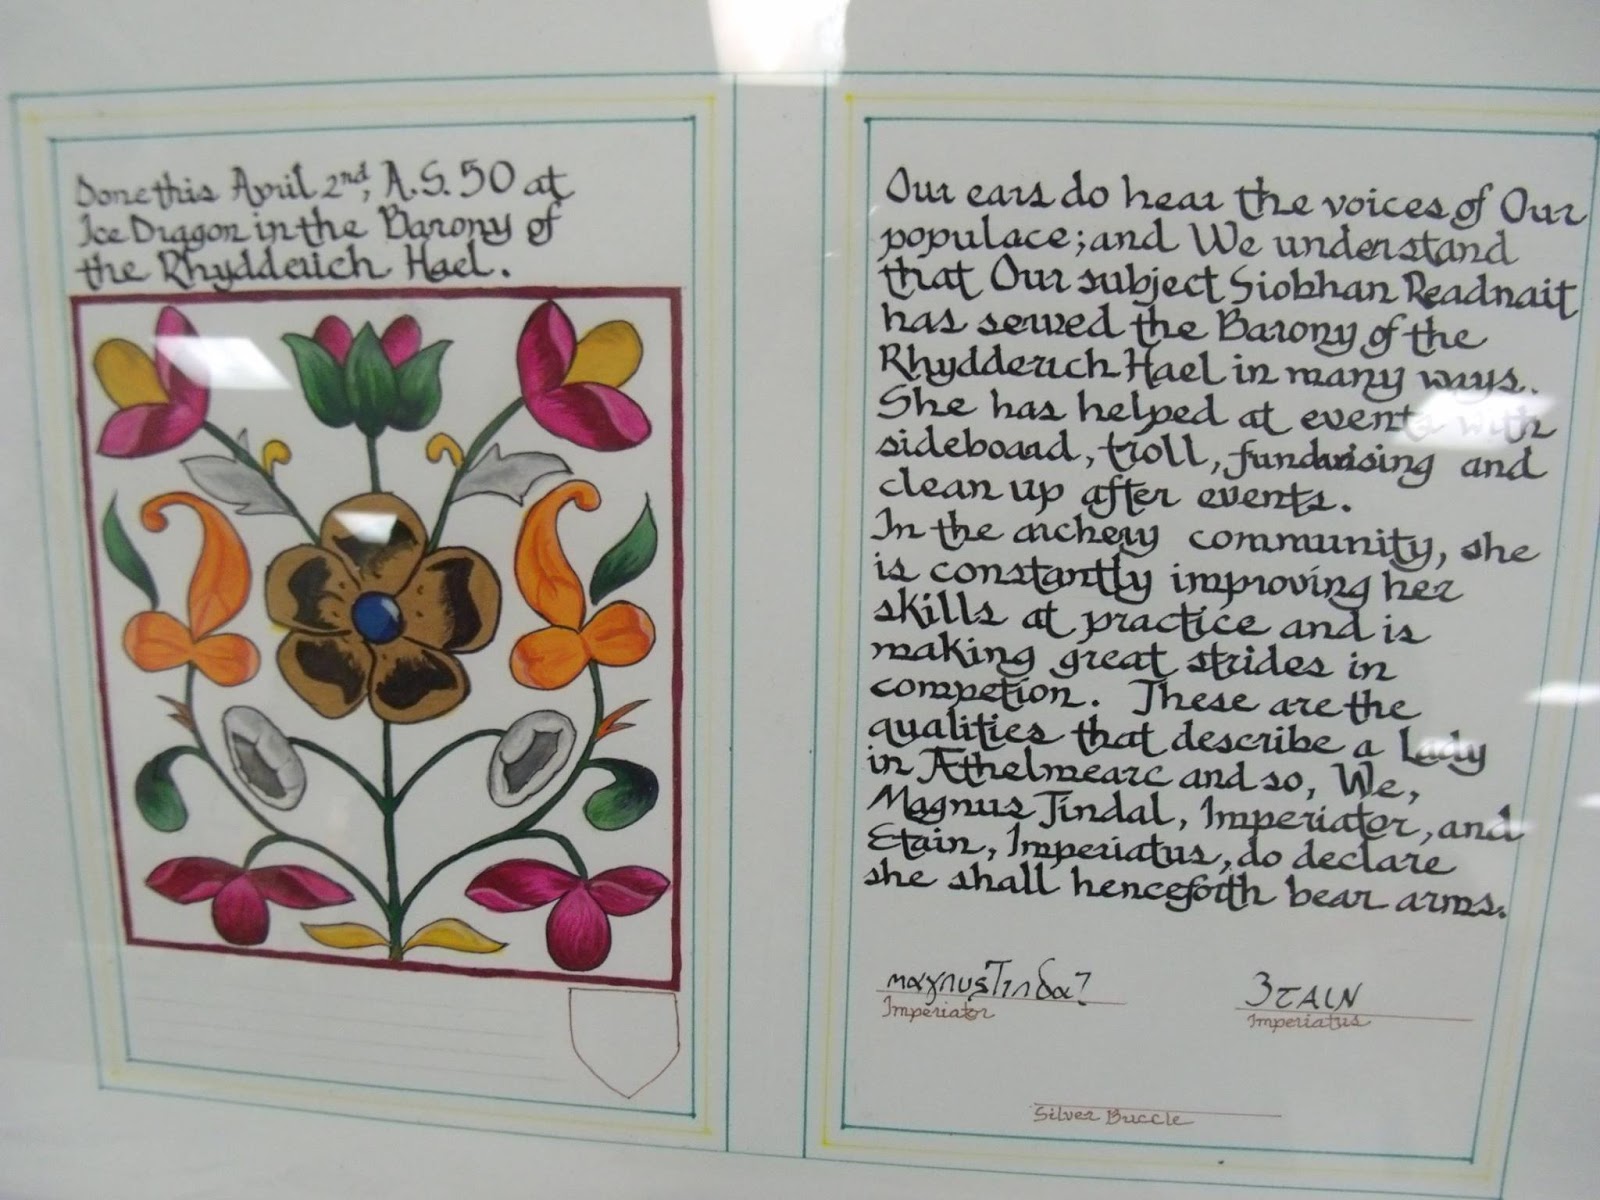 Done this April 2nd, A.S. 50 at
Ice Dragon in the Barony of
the Rhydderich Hael.
Our ears do hear the voices of Our
populace; and We understand
that Our subject Siobhan Readnait
has served the Barony of the
Rhydderich Hael in many ways.
She has helped at events with
sideboard, troll, fundraising and
clean up after events.
In the archery community, she
is constantly improving her
skills at practice and is
making great strides in
competion. These are the
qualities that describe a Lady
in Æthelmearc and so, We,
Magnus Tindal, Imperiator, and
Etain, Imperiatus, do declare
she shall henceforth bear arms.
Magnus Tindal
Imperiator
Etain
Imperiatus
Silver Buccle